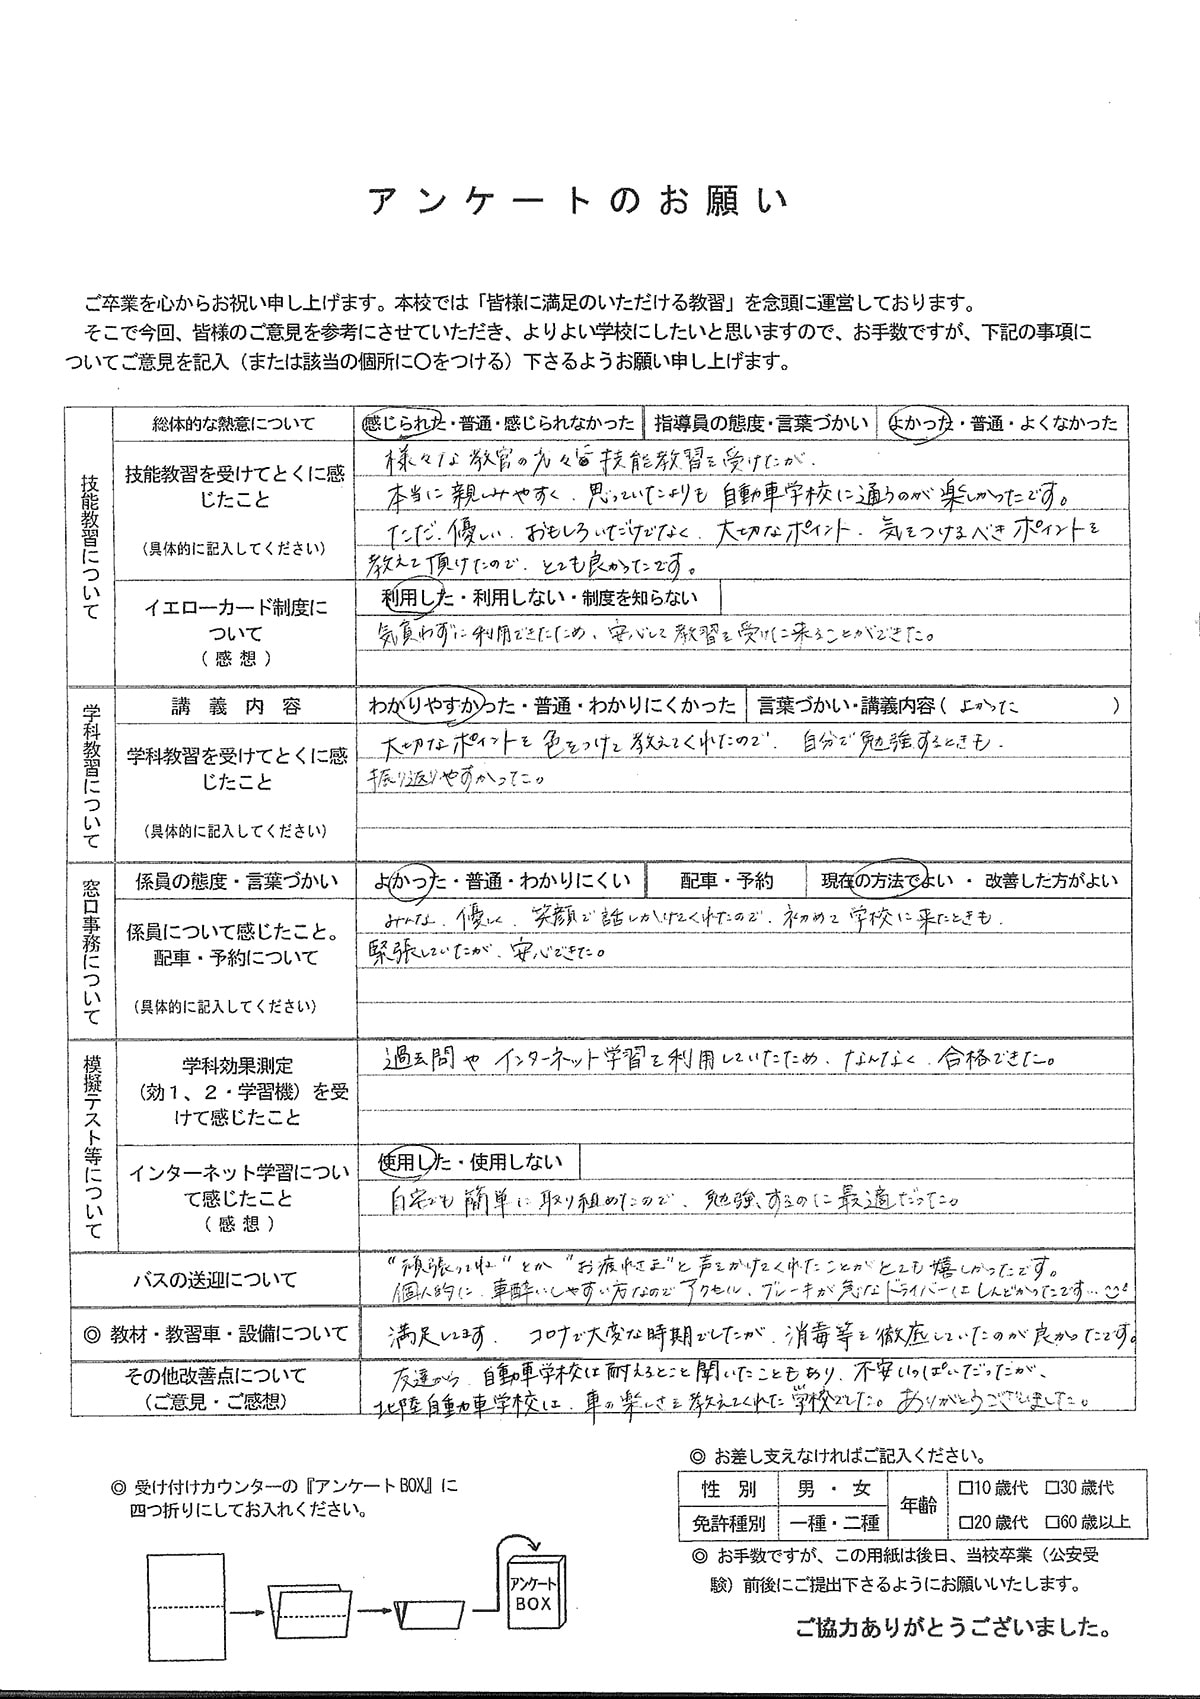 アンケートのお願い
ご卒業を心からお祝い申し上げます。本校では「皆様に満足のいただける教習」を念頭に運営しております。
そこで今回、皆様のご意見を参考にさせていただき、よりよい学校にしたいと思いますので、お手数ですが、下記の事項に
ついてご意見を記入（または該当の個所に〇をつける）下さるようお願い申し上げます。
技能教習について
総体的な熱意について
感じられた・普通・感じられなかった
指導員の態度・言葉づかい
よかった・普通・よくなかった
技能教習を受けてとくに感
じたこと
（具体的に記入してください）
様々な教官の方々 技能教習を受けたが、
本当に親しみやすく、思っていたよりも自動車学校に通うのが楽しかったです。
ただ、優しい、おもしろいだけでなく、大切なポイント、気をつけるべきポイントを
教えて頂けたので、とても良かったです。
イエローカード制度に
ついて
（感想）
利用した・利用しない・制度を知らない
気負わずに利用できたため、安心して教習を受けに来ることができた。
学科教習について
講義内容
わかりやすかった・普通・わかりにくかった
言葉づかい・講義内容（ よかった ）
学科教習を受けてとくに感
じたこと
（具体的に記入してください）
大切なポイントを色をつけて教えてくれたので、自分で勉強するときも、
振り返りやすかった。
窓口事務について
係員の態度・言葉づかい
よかった・普通・わかりにくい
配車・予約
現在の方法でよい ・ 改善した方がよい
係員について感じたこと。
配車・予約について
（具体的に記入してください）
みんな、優しく、笑顔で話しかけてくれたので、初めて学校に来たときも、
緊張していたが、安心できた。
模擬テスト等について
学科効果測定
（効１、２・学習機）を受
けて感じたこと
過去問やインターネット学習を利用していたため、なんなく、合格できた。
インターネット学習につい
て感じたこと
（感想）
使用した・使用しない
自宅でも簡単に取り組めたので、勉強するのに最適だった。
バスの送迎について
"頑張ってね"とか"お疲れさま"と声をかけてくれたことがとても嬉しかったです。
個人的に、車酔いしやすい方なのでアクセル、ブレーキが急なドライバーはしんどかったです…
◎ 教材・教習車・設備について
満足してます。 コロナで大変な時期でしたが、消毒等を徹底していたのが良かったです。
その他改善点について
（ご意見・ご感想）
友達から、自動車学校は耐えるとこと聞いたこともあり、不安いっぱいだったが、
北陸自動車学校は、車の楽しさを教えてくれた学校でした。ありがとうございました。
◎ 受け付けカウンターの『アンケートBOX』に
四つ折りにしてお入れください。
アンケート
BOX
◎ お差し支えなければご記入ください。
性 別
男 ・ 女
年齢
□10歳代 □30歳代
免許種別
一種・二種
□20歳代 □60歳以上
◎ お手数ですが、この用紙は後日、当校卒業（公安受
験）前後にご提出下さるようにお願いいたします。
ご協力ありがとうございました。